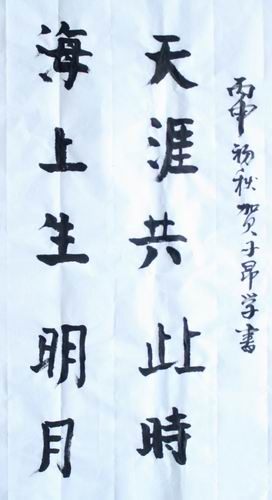 海上生明月
天涯共此時
丙申初秋贺子昂学書